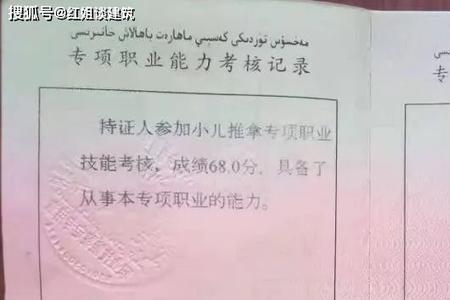 搜狐号@红姐谈建筑
مەخسۇس تۈردىكى كەسىپىي ماھارەت باھالاش خاتىرىسى
专项职业能力考核记录
专
持证人参加小儿推拿专项职业
技能考核，成绩68.0分，具备了
从事本专项职业的能力。